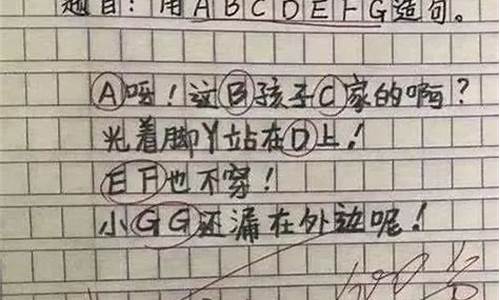 题目：用ABCDEFG造句。
A呀！这B孩子C家的啊？
光着脚丫站在D上！
EF也不穿！
小GG还漏在外边呢！
100分